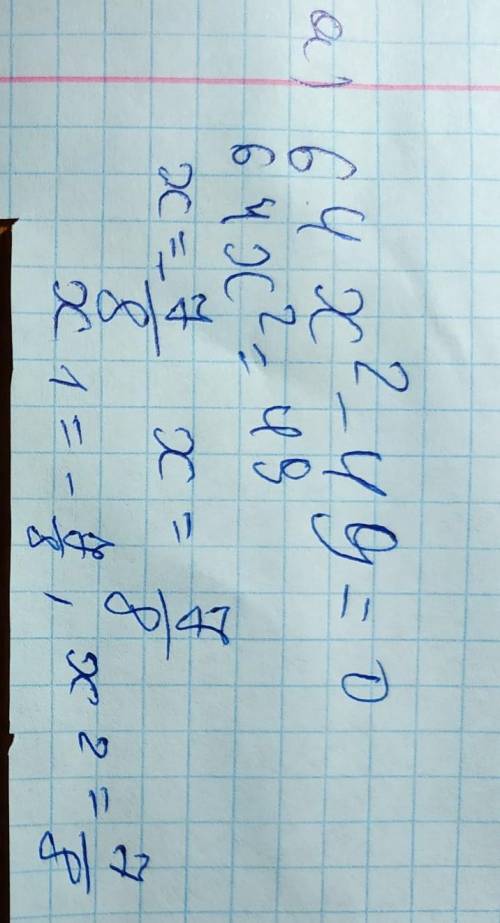 а) 64x²-49=0
64x²=49
x=-7/8 x=7/8
x1=-7/8, x2=7/8